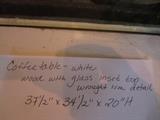 Coffee table - white
wood with glass inset top
wrought iron detail
37 1/2" x 34 1/2" x 20" H